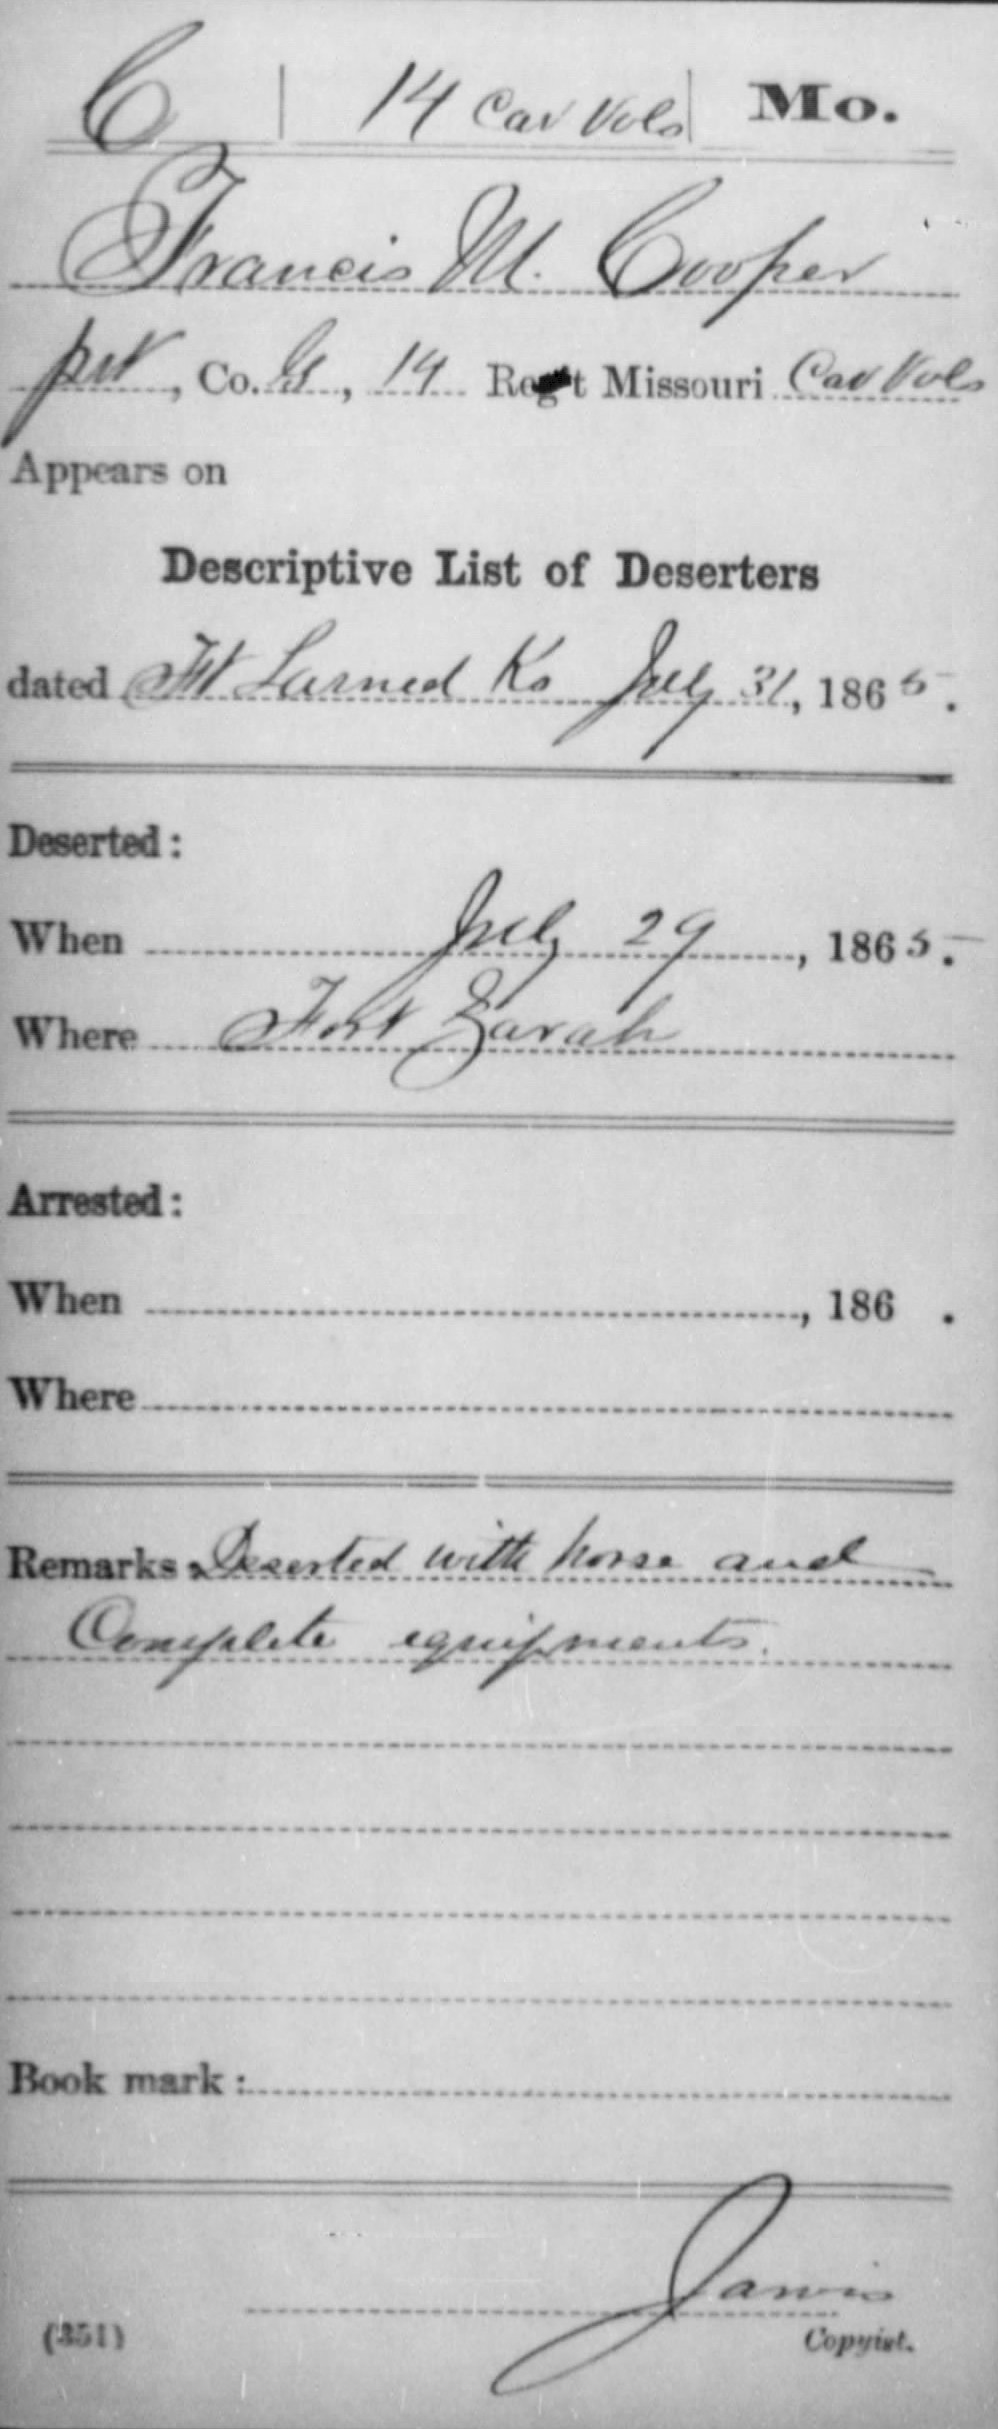 C | 14 Cav Vols | Mo.
Francis M. Cooper
pvt, Co. G, 14 Reg't Missouri Cav Vols
Appears on
Descriptive List of Deserters
dated Ft Larned Ks July 31, 1865.
Deserted:
When July 29, 1865.
Where Fort Zarah
Arrested:
When , 186 .
Where
Remarks: Deserted with horse and
Complete equipments.
Book mark:
Jarvis
(351) Copyist.